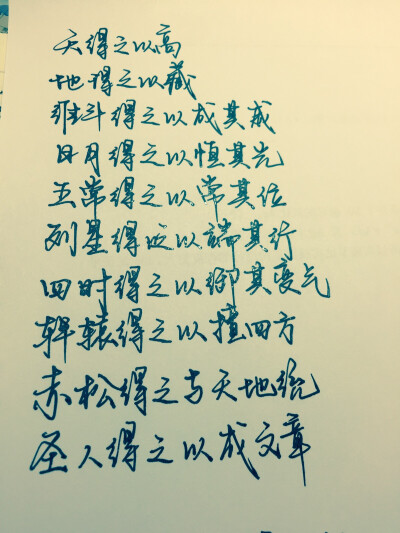 天得之以高
地得之以藏
维斗得之以成其威
日月得之以恒其光
五常得之以常其位
列星得之以端其行
四时得之以御其变气
轩辕得之以擅四方
赤松得之与天地统
圣人得之以成文章